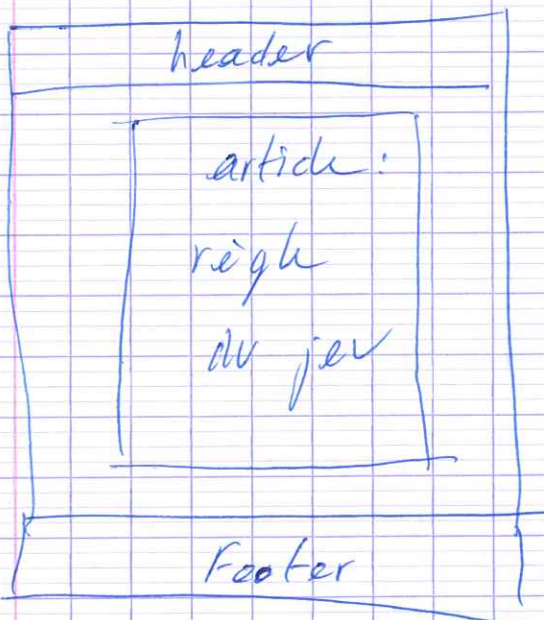 header
article:
règle
du jeu
Footer